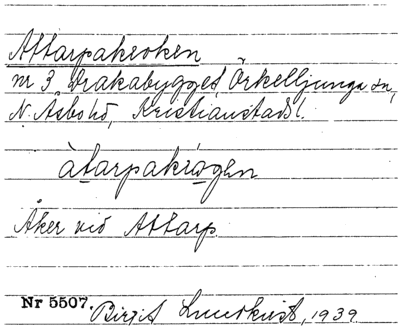 Attarpakroken
nr 3 Drakabygget, Örkelljunga sn,
N. Åsbo hd, Kristianstads l.
àtarpakrogen
Åker vid Attarp
Nr 5507. Birgit Lundkvist, 1939